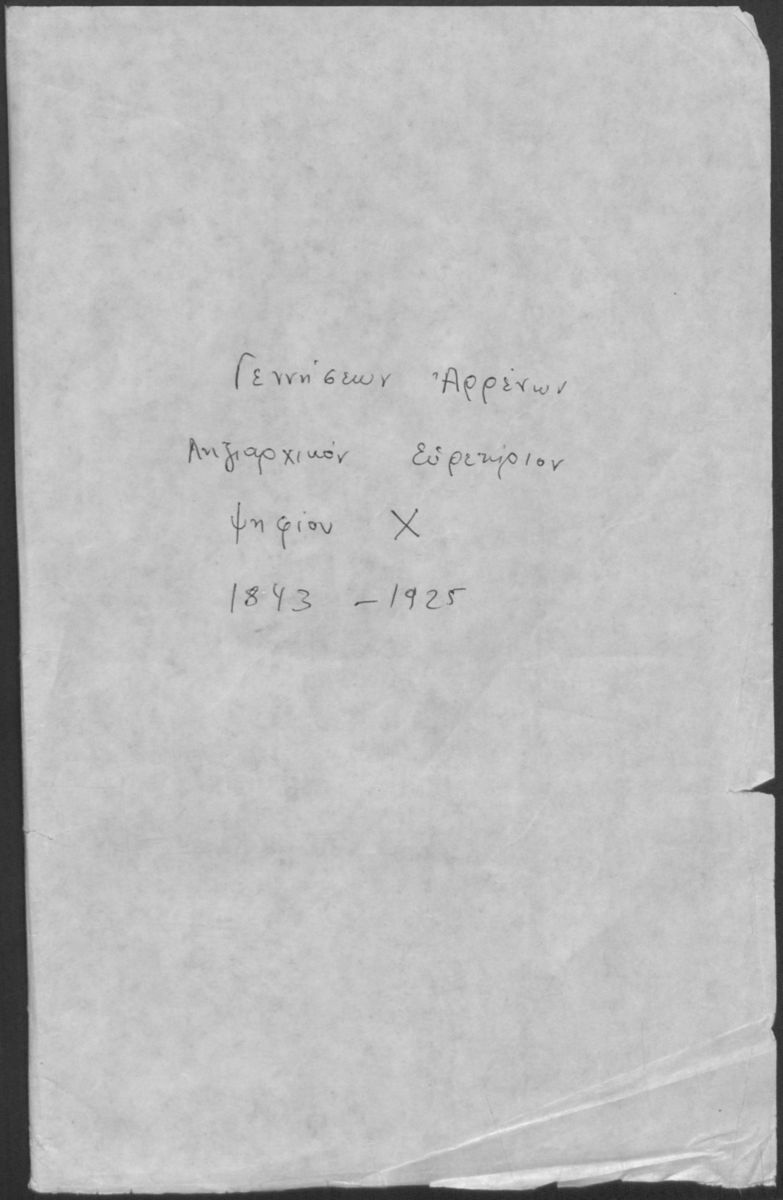 Γεννήσεων Ἀρρένων
Ληξιαρχικόν Εὑρετήριον
ψηφίου Χ
1843 – 1925